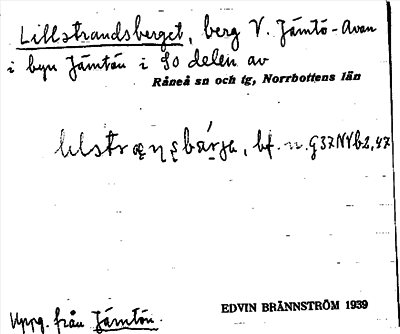 Lillstrandsberget, berg V. Jämtö-Avan
i byn Jämtön i SO delen av
Råneå sn och tg, Norrbottens län
bf.
Uppg. från Jämtön.
EDVIN BRÄNNSTRÖM 1939